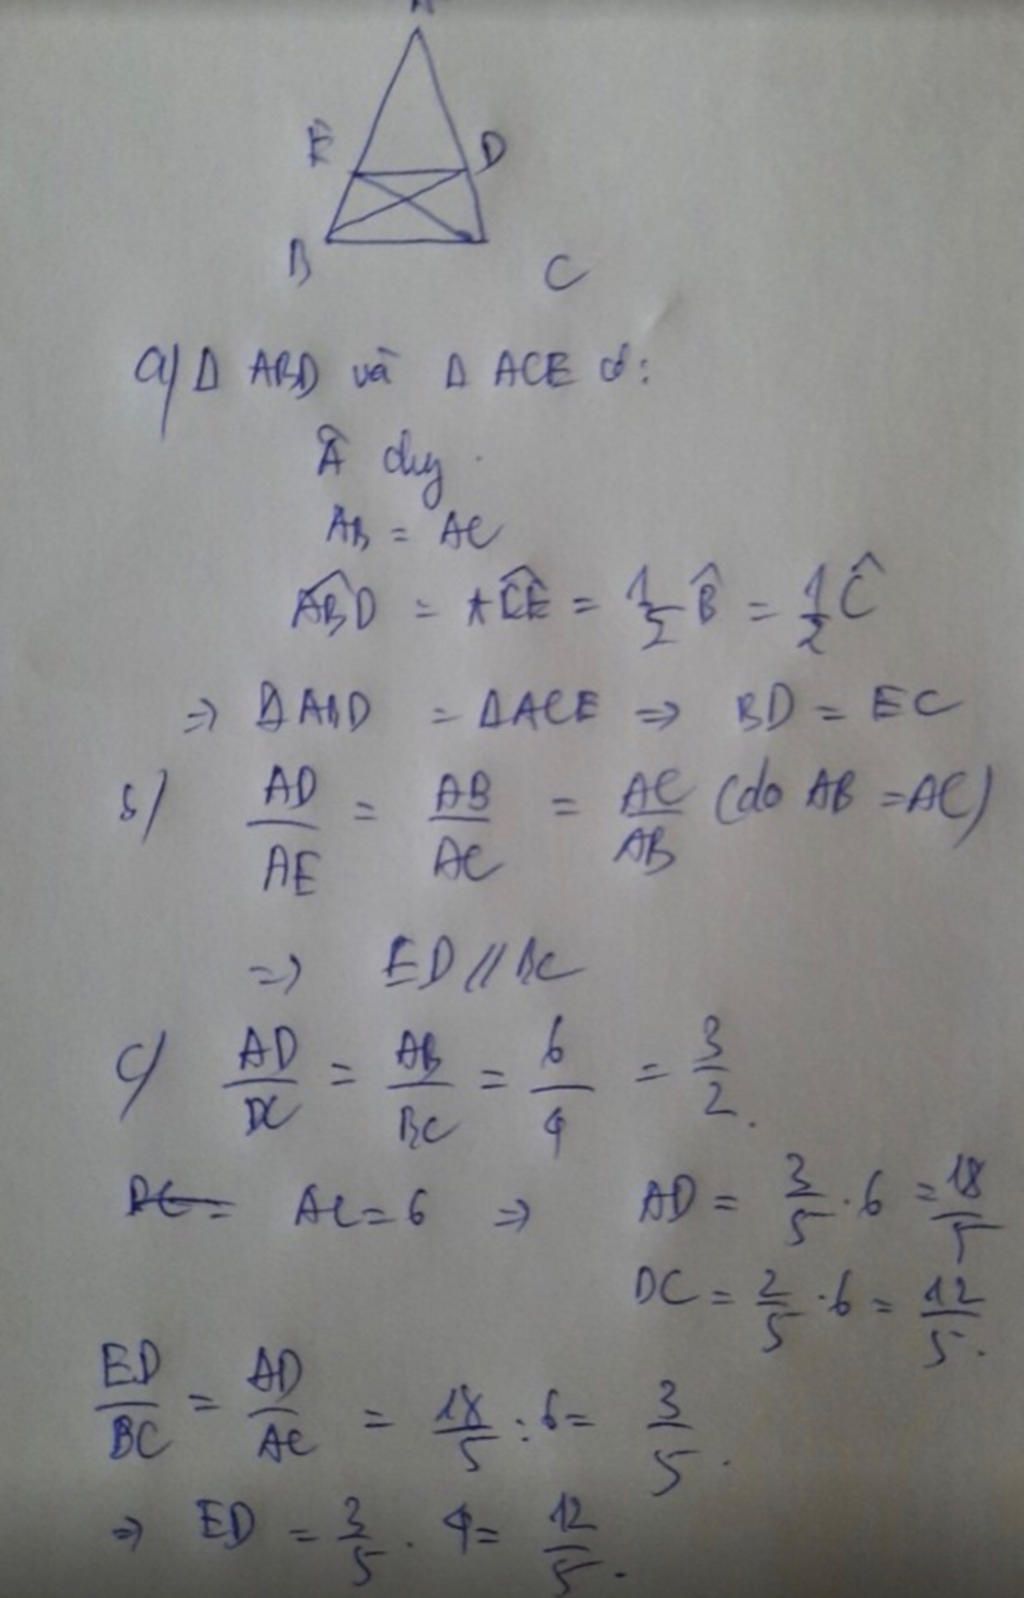 A
E D
B C
a) Δ ABD và Δ ACE có:
Â chung
AB = AC
\widehat{ABD} = \widehat{ACE} = \frac{1}{2} \hat{B} = \frac{1}{2} \hat{C}
⇒ Δ ABD = Δ ACE ⇒ BD = EC
b) \frac{AD}{AE} = \frac{AB}{AC} = \frac{AC}{AB} (do AB = AC)
⇒ ED // BC
c) \frac{AD}{DC} = \frac{AB}{BC} = \frac{6}{4} = \frac{3}{2}.
AC = 6 ⇒ AD = \frac{3}{5} . 6 = \frac{18}{5}
DC = \frac{2}{5} . 6 = \frac{12}{5}.
\frac{ED}{BC} = \frac{AD}{AC} = \frac{18}{5} : 6 = \frac{3}{5}.
⇒ ED = \frac{3}{5} . 4 = \frac{12}{5}.